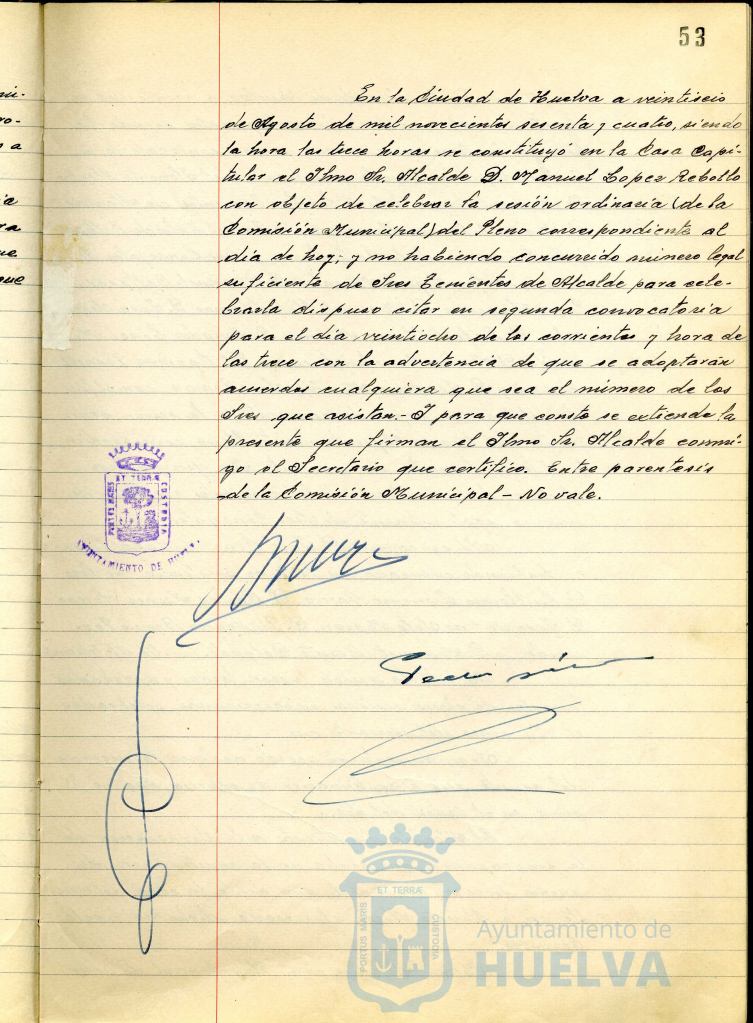 53
En la Ciudad de Huelva a veintiseis
de Agosto de mil novecientos sesenta y cuatro, siendo
la hora las trece horas se constituyó en la Casa Capi-
tular el Ilmo Sr. Alcalde D. Manuel Lopez Rebollo
con objeto de celebrar la sesión ordinaria (de la
Comisión Municipal) del Pleno correspondiente al
día de hoy; y no habiendo concurrido número legal
suficiente de Sres Tenientes de Alcalde para cele-
brarla dispuso citar en segunda convocatoria
para el día veintiocho de los corrientes y hora de
las trece con la advertencia de que se adoptarán
acuerdos cualquiera que sea el número de los
Sres que asistan.- Y para que conste se extiende la
presente que firman el Ilmo Sr. Alcalde conmi-
go el Secretario que certifico. Entre parentesis
-de la Comisión Municipal- No vale.
ET TERRÆ
PORTUS MARIS
CUSTODIA
AYUNTAMIENTO DE HUELVA
ET TERRÆ
PORTUS MARIS
CUSTODIA
Ayuntamiento de
HUELVA